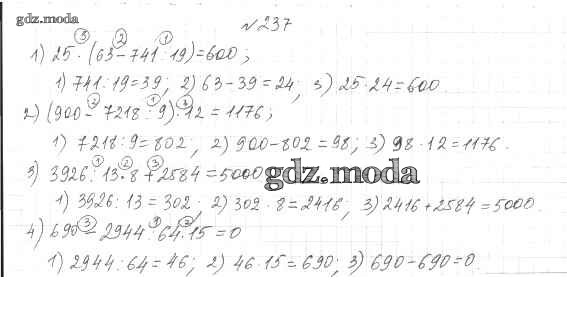 gdz.moda
№237
1) 25 · (63 - 741 : 19) = 600;
1) 741 : 19 = 39; 2) 63 - 39 = 24; 3) 25 · 24 = 600
2) (900 - 7218 : 9) · 12 = 1176;
1) 7218 : 9 = 802; 2) 900 - 802 = 98; 3) 98 · 12 = 1176.
3) 3926 : 13 · 8 + 2584 = 5000
gdz.moda
1) 3926 : 13 = 302; 2) 302 · 8 = 2416; 3) 2416 + 2584 = 5000.
4) 690 - 2944 : 64 · 15 = 0
1) 2944 : 64 = 46; 2) 46 · 15 = 690; 3) 690 - 690 = 0.